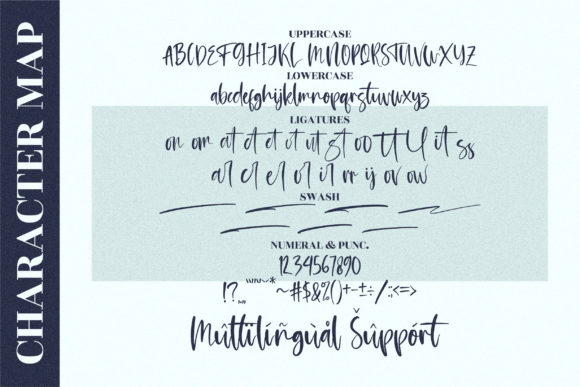 CHARACTER MAP
UPPERCASE
ABCDEFGHIJKL MNOPQRSTUVWXYZ
LOWERCASE
abcdefghijklmnopqrstuvwxyz
LIGATURES
on om at dt et ct ut gt oo tt ll it ss
al cl el ol il rr ij ov ow
SWASH
NUMERAL & PUNC.
1234567890
~#$&%()+-±÷/:;<=>
Multilingual Support